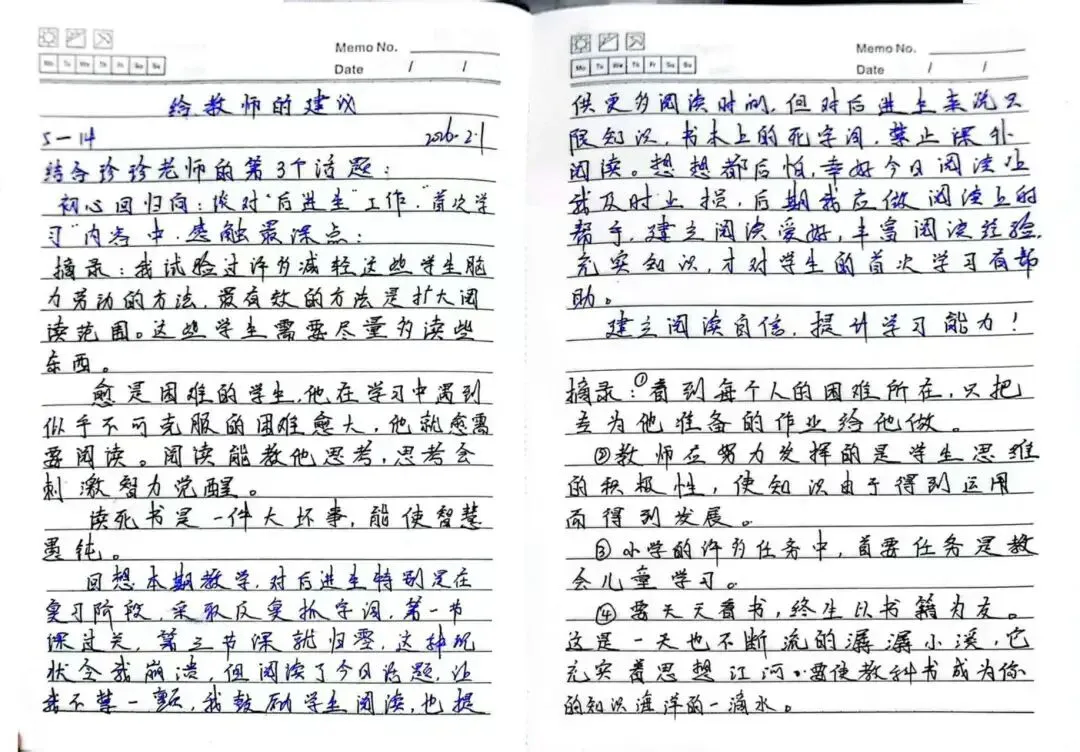 Memo No.
Mo Tu We Th Fr Sa Su
Date / /
给教师的建议
5-14 2026.2.1
结合珍珍老师的第3个话题：
初心回归向：谈对"后进生"工作，"首次学
习"内容中，感触最深点：
摘录：我试验过许多减轻这些学生脑
力劳动的方法，最有效的方法是扩大阅
读范围。这些学生需要尽量多读些
东西。
愈是困难的学生，他在学习中遇到
似乎不可克服的困难愈大，他就愈需
要阅读。阅读能教他思考，思考会
刺激智力觉醒。
读死书是一件大坏事，能使智慧
愚钝。
回想本期教学，对后进生特别是在
复习阶段，采取反复抓字词，第一节
课过关，第三节课就归零，这种现
状令我崩溃，但阅读了今日话题，让
我不禁一颤，我鼓励学生阅读，也提
Memo No.
Mo Tu We Th Fr Sa Su
Date / /
供更多阅读时间，但对后进生来说只
限知识，书本上的死字词，禁止课外
阅读。想想都后怕，幸好今日阅读让
我及时止损，后期我应做阅读上的
帮手，建立阅读爱好，丰富阅读经验，
充实知识，才对学生的首次学习有帮
助。
建立阅读自信，提升学习能力！
摘录：①看到每个人的困难所在，只把
专为他准备的作业给他做。
②教师在努力发挥的是学生思维
的积极性，使知识由于得到运用
而得到发展。
③小学的许多任务中，首要任务是教
会儿童学习。
④要天天看书，终生以书籍为友。
这是一天也不断流的潺潺小溪，它
充实着思想江河。要使教科书成为你
的知识海洋的一滴水。